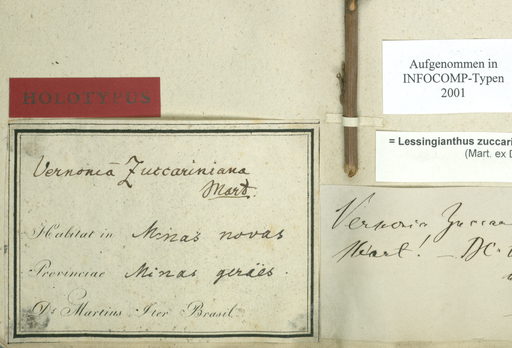 Aufgenommen in
INFOCOMP-Typen
2001
HOLOTYPUS
= Lessingianthus zuccari
(Mart. ex D
Vernonia Zuccariniana
Mart.
Habitat in Minas novas
Provinciae Minas geraës.
Dr Martius Iter Brasil.
Vernonia Zucca
Mart! — DC.